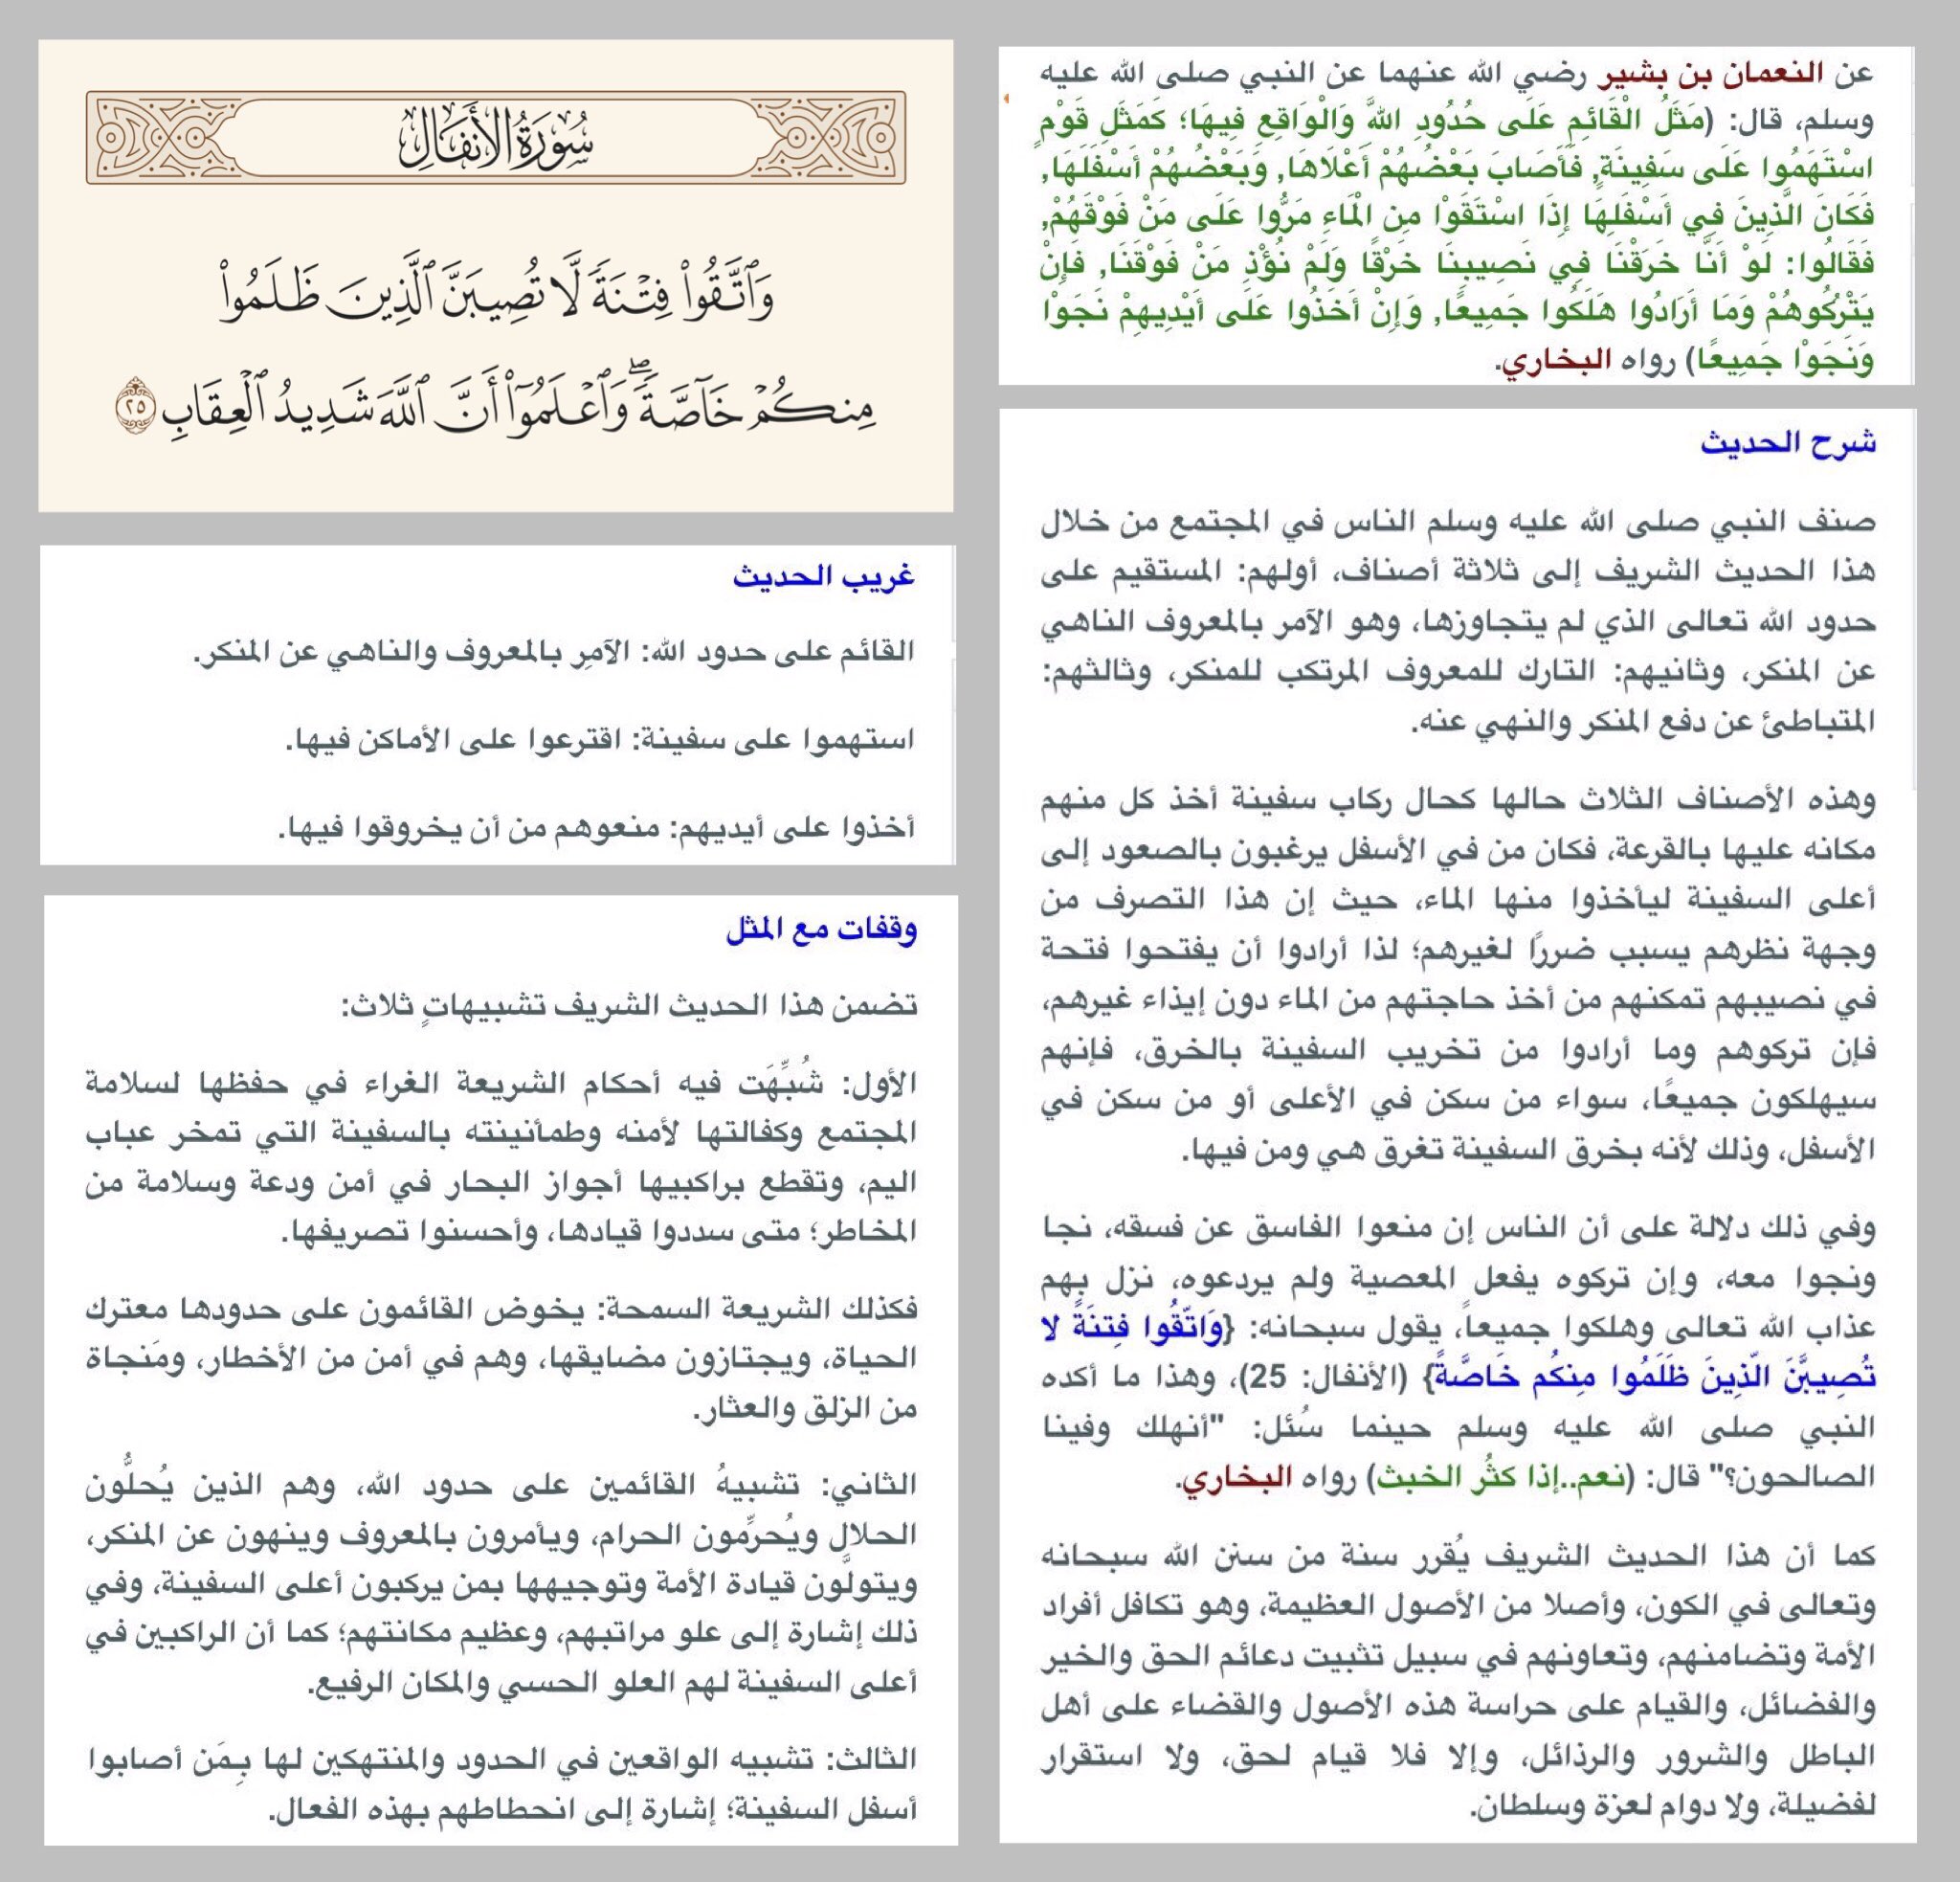 عن النعمان بن بشير رضي الله عنهما عن النبي صلى الله عليه
وسلم، قال: (مَثَلُ الْقَائِمِ عَلَى حُدُودِ اللهِ وَالْوَاقِعِ فِيهَا؛ كَمَثَلِ قَوْمٍ
اسْتَهَمُوا عَلَى سَفِينَةٍ, فَأَصَابَ بَعْضُهُمْ أَعْلَاهَا, وَبَعْضُهُمْ أَسْفَلَهَا,
فَكَانَ الَّذِينَ فِي أَسْفَلِهَا إِذَا اسْتَقَوْا مِن الْمَاءِ مَرُّوا عَلَى مَنْ فَوْقَهُمْ,
فَقَالُوا: لَوْ أَنَّا خَرَقْنَا فِي نَصِيبِنَا خَرْقًا وَلَمْ نُؤْذِ مَنْ فَوْقَنَا, فَإِنْ
يَتْرُكُوهُمْ وَمَا أَرَادُوا هَلَكُوا جَمِيعًا, وَإِنْ أَخَذُوا عَلَى أَيْدِيهِمْ نَجَوْا
وَنَجَوْا جَمِيعًا) رواه البخاري.
شرح الحديث
صنف النبي صلى الله عليه وسلم الناس في المجتمع من خلال
هذا الحديث الشريف إلى ثلاثة أصناف، أولهم: المستقيم على
حدود الله تعالى الذي لم يتجاوزها، وهو الآمر بالمعروف الناهي
عن المنكر، وثانيهم: التارك للمعروف المرتكب للمنكر، وثالثهم:
المتباطئ عن دفع المنكر والنهي عنه.
وهذه الأصناف الثلاث حالها كحال ركاب سفينة أخذ كل منهم
مكانه عليها بالقرعة، فكان من في الأسفل يرغبون بالصعود إلى
أعلى السفينة ليأخذوا منها الماء، حيث إن هذا التصرف من
وجهة نظرهم يسبب ضررًا لغيرهم؛ لذا أرادوا أن يفتحوا فتحة
في نصيبهم تمكنهم من أخذ حاجتهم من الماء دون إيذاء غيرهم،
فإن تركوهم وما أرادوا من تخريب السفينة بالخرق، فإنهم
سيهلكون جميعًا، سواء من سكن في الأعلى أو من سكن في
الأسفل، وذلك لأنه بخرق السفينة تغرق هي ومن فيها.
وفي ذلك دلالة على أن الناس إن منعوا الفاسق عن فسقه، نجا
ونجوا معه، وإن تركوه يفعل المعصية ولم يردعوه، نزل بهم
عذاب الله تعالى وهلكوا جميعاً، يقول سبحانه: {وَاتَّقُوا فِتنَةً لا
تُصِيبَّنَ الّذِينَ ظَلَمُوا مِنكُم خَاصَّةً} (الأنفال: 25)، وهذا ما أكده
النبي صلى الله عليه وسلم حينما سُئل: "أنهلك وفينا
الصالحون؟" قال: (نعم..إذا كثُر الخبث) رواه البخاري.
كما أن هذا الحديث الشريف يُقرر سنة من سنن الله سبحانه
وتعالى في الكون، وأصلا من الأصول العظيمة، وهو تكافل أفراد
الأمة وتضامنهم، وتعاونهم في سبيل تثبيت دعائم الحق والخير
والفضائل، والقيام على حراسة هذه الأصول والقضاء على أهل
الباطل والشرور والرذائل، وإلا فلا قيام لحق، ولا استقرار
لفضيلة، ولا دوام لعزة وسلطان.
سُورَةُ الأَنفَالِ
وَٱتَّقُوا۟ فِتْنَةً لَّا تُصِيبَنَّ ٱلَّذِينَ ظَلَمُوا۟
مِنكُمْ خَآصَّةً ۖ وَٱعْلَمُوٓا۟ أَنَّ ٱللَّهَ شَدِيدُ ٱلْعِقَابِ ٢٥
غريب الحديث
القائم على حدود الله: الآمِر بالمعروف والناهي عن المنكر.
استهموا على سفينة: اقترعوا على الأماكن فيها.
أخذوا على أيديهم: منعوهم من أن يخروقوا فيها.
وقفات مع المثل
تضمن هذا الحديث الشريف تشبيهاتٍ ثلاث:
الأول: شُبِّهَت فيه أحكام الشريعة الغراء في حفظها لسلامة
المجتمع وكفالتها لأمنه وطمأنينته بالسفينة التي تمخر عباب
اليم، وتقطع براكبيها أجواز البحار في أمن ودعة وسلامة من
المخاطر؛ متى سددوا قيادها، وأحسنوا تصريفها.
فكذلك الشريعة السمحة: يخوض القائمون على حدودها معترك
الحياة، ويجتازون مضايقها، وهم في أمن من الأخطار، ومَنجاة
من الزلق والعثار.
الثاني: تشبيهُ القائمين على حدود الله، وهم الذين يُحلُّون
الحلال ويُحرِّمون الحرام، ويأمرون بالمعروف وينهون عن المنكر،
ويتولَّون قيادة الأمة وتوجيهها بمن يركبون أعلى السفينة، وفي
ذلك إشارة إلى علو مراتبهم، وعظيم مكانتهم؛ كما أن الراكبين في
أعلى السفينة لهم العلو الحسي والمكان الرفيع.
الثالث: تشبيه الواقعين في الحدود والمنتهكين لها بِمَن أصابوا
أسفل السفينة؛ إشارة إلى انحطاطهم بهذه الفعال.